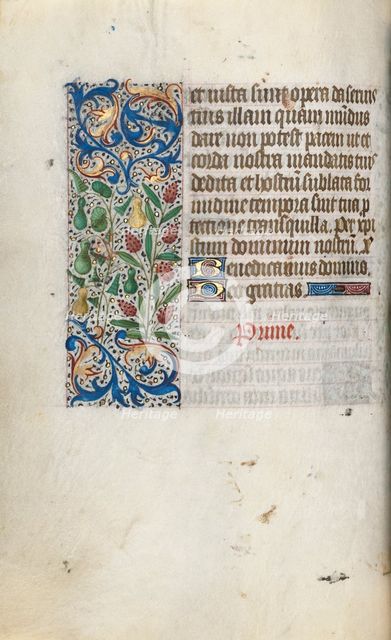 et iusta sunt opera da seruis
tuis illam quam mūdus
dare non potest pacem ut et
corda nostra mandatis tuis
dedita et hostiū sublata for
midine tempora sint tua p
tectione tranquilla. Per xpi
stum dominum nostrū. X
Benedicamus domino.
Deo gratias.
Prime.
Heritage
Heritage
Heritage
Heritage
Heritage